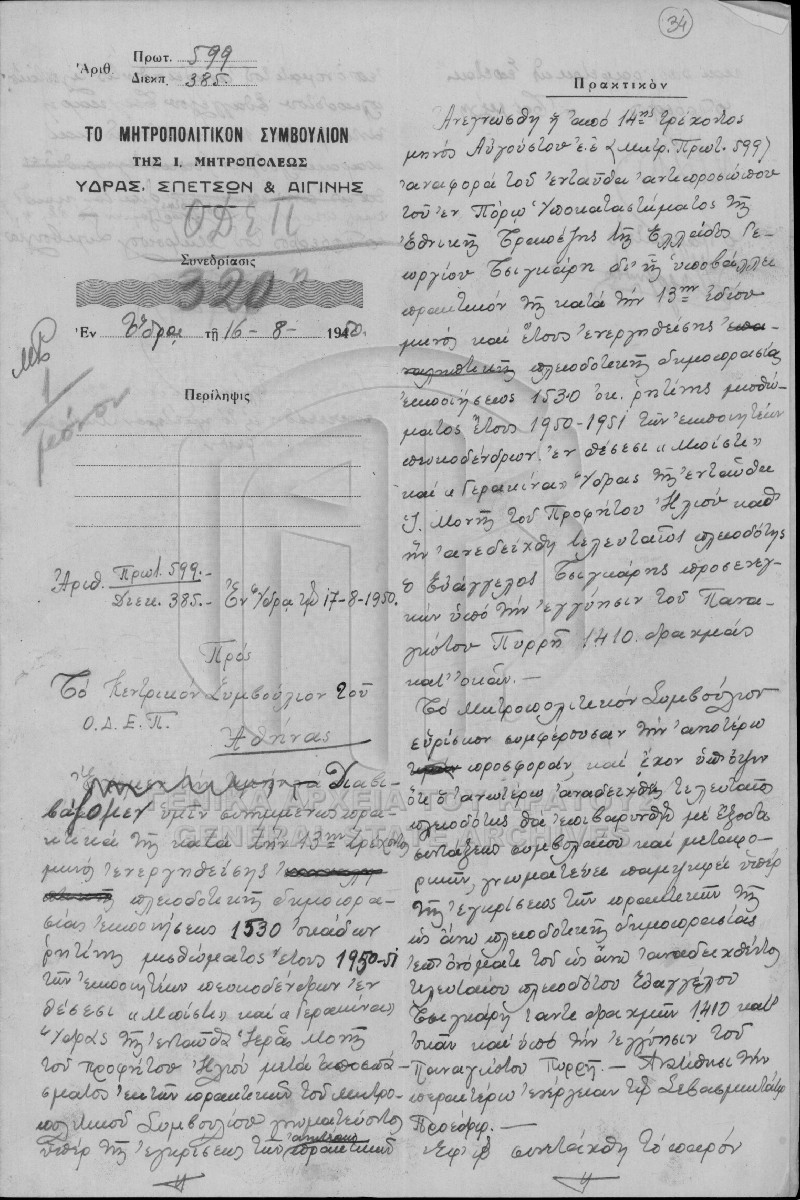 34
Ἀριθ. Πρωτ. 599
Διεκπ. 385.
ΤΟ ΜΗΤΡΟΠΟΛΙΤΙΚΟΝ ΣΥΜΒΟΥΛΙΟΝ
ΤΗΣ Ι. ΜΗΤΡΟΠΟΛΕΩΣ
ΥΔΡΑΣ, ΣΠΕΤΣΩΝ & ΑΙΓΙΝΗΣ
ΟΔΕΠ
Συνεδρίασις
320η
Ἐν Ὕδρᾳ τῇ 16-8-1950.
Περίληψις
Ἀριθ. Πρωτ. 599.-
Διεκ. 385.- Ἐν Ὕδρᾳ τῇ 17-8-1950.
Πρὸς
Τὸ Κεντρικὸν Συμβούλιον τοῦ
Ο.Δ.Ε.Π.
Ἀθήνας
Διαβι-
βάζομεν ὑμῖν συνημμένως πρα-
κτικὰ τῆς κατὰ τὴν 13ην τρέχοντος
μηνὸς ἐνεργηθείσης
πλειοδοτικῆς δημοπρα-
σίας ἐκποιήσεως 1530 ὀκάδων
ρητίνης μισθώματος ἔτους 1950-51
τῶν ἐκποιητέων πευκοδένδρων ἐν
θέσεσι «Μπίστι» καὶ «Γερακίνα»
Ὕδρας τῆς ἐνταῦθα Ἱερᾶς Μονῆς
τοῦ Προφήτου Ἠλιοὺ μετὰ ἀποσπά-
σματος ἐκ τῶν πρακτικῶν τοῦ Μητρο-
πολιτικοῦ Συμβουλίου γνωματεύοντος
ὑπὲρ τῆς ἐγκρίσεως τῶν πρακτικῶν
Πρακτικὸν
Ἀνεγνώσθη ἡ ἀπὸ 14ης τρέχοντος
μηνὸς Αὐγούστου ἐ.ἔ. (Μητρ. Πρωτ. 599)
ἀναφορὰ τοῦ ἐνταῦθα ἀντιπροσώπου
τοῦ ἐν Πόρῳ Ὑποκαταστήματος τῆς
Ἐθνικῆς Τραπέζης τῆς Ἑλλάδος Γε-
ωργίου Τσιγκάρη δι' ἧς ὑποβάλλει
πρακτικὸν τῆς κατὰ τὴν 13ην ἰδίου
μηνὸς καὶ ἔτους ἐνεργηθείσης ἐπα-
ναληπτικῆς πλειοδοτικῆς δημοπρασίας
ἐκποιήσεως 1530 ὀκ. ρητίνης μισθώ-
ματος ἔτους 1950-1951 τῶν ἐκποιητέων
πευκοδένδρων ἐν θέσεσι «Μπίστι»
καὶ «Γερακίνα» Ὕδρας τῆς ἐνταῦθα
Ἱ. Μονῆς τοῦ Προφήτου Ἠλιοὺ καθ'
ἣν ἀνεδείχθη τελευταῖος πλειοδότης
ὁ Εὐάγγελος Τσιγκάρης προσενεγ-
κὼν ὑπὸ τὴν ἐγγύησιν τοῦ Πανα-
γιώτου Πυρρῆ 1410 δραχμὰς
κατ' ὀκᾶν.-
Τὸ Μητροπολιτικὸν Συμβούλιον
εὑρίσκον συμφέρουσαν τὴν ἀνωτέρω
προσφοράν, καὶ ἔχον ὑπ' ὄψιν
ὅτι ὁ ἀνωτέρω ἀναδειχθεὶς τελευταῖος
πλειοδότης θὰ ἐπιβαρυνθῇ μὲ ἔξοδα
συντάξεως συμβολαίου καὶ μεταφο-
ρικῶν, γνωματεύει παμψηφεὶ ὑπὲρ
τῆς ἐγκρίσεως τῶν πρακτικῶν τῆς
ὡς ἄνω πλειοδοτικῆς δημοπρασίας
ἐπ' ὀνόματι τοῦ ὡς ἄνω ἀναδειχθέντος
τελευταίου πλειοδότου Εὐαγγέλου
Τσιγκάρη ἀντὶ δραχμῶν 1410 κατ'
ὀκᾶν καὶ ὑπὸ τὴν ἐγγύησιν τοῦ
Παναγιώτου Πυρρῆ.- Ἀνατίθησι τὴν
περαιτέρω ἐνέργειαν τῷ Σεβασμιωτάτῳ
Προέδρῳ.-
Ἐφ' ᾧ συνετάχθη τὸ παρὸν
ΓΕΝΙΚΑ ΑΡΧΕΙΑ ΤΟΥ ΚΡΑΤΟΥΣ
GENERAL STATE ARCHIVES